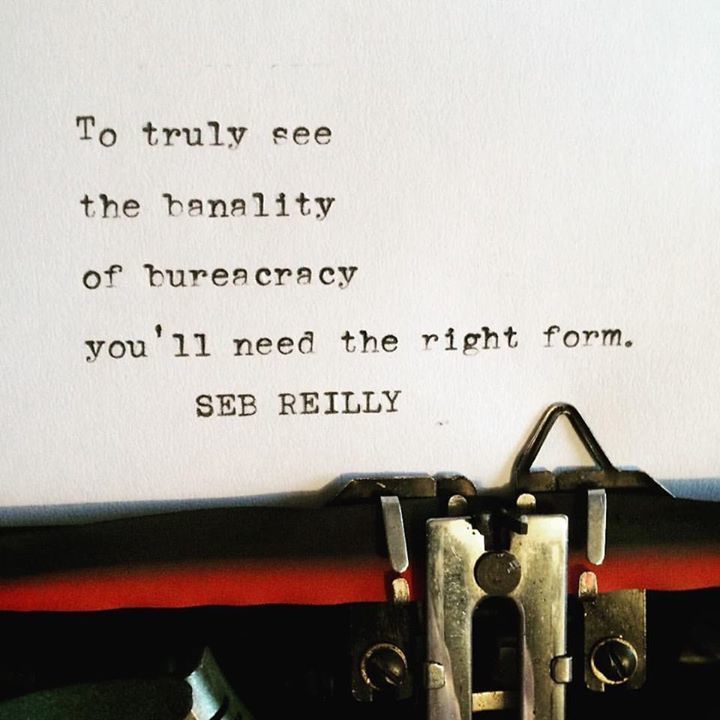 To truly see
the banality
of bureacracy
you'll need the right form.
SEB REILLY